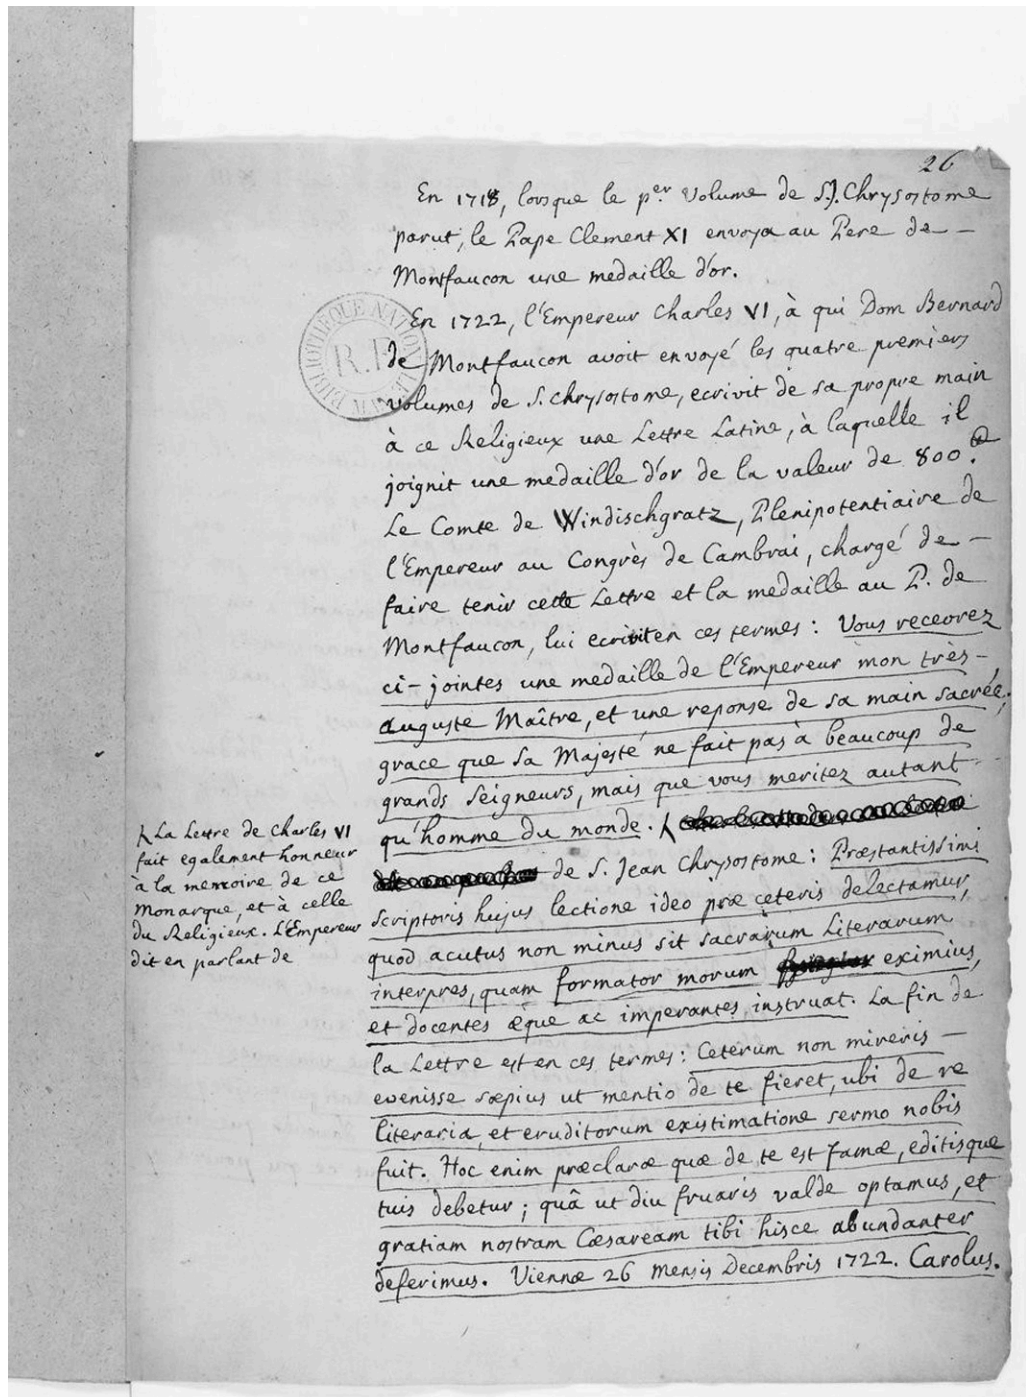 26
En 1718, lorsque le per. Volume de S. J. Chrysostome
parut, le Pape Clement XI envoya au Pere de –
Montfaucon une medaille d'or.
En 1722, l'Empereur Charles VI, à qui Dom Bernard
de Montfaucon avoit envoyé les quatre premiers
volumes de S. Chrysostome, ecrivit de sa propre main
à ce Religieux une Lettre Latine, à laquelle il
joignit une medaille d'or de la valeur de 800.
Le Comte de Windischgratz, Plenipotentiaire de
l'Empereur au Congrès de Cambrai, chargé de –
faire tenir cette Lettre et la medaille au P. de
Montfaucon, lui ecrivit en ces termes : Vous recevrez
ci-jointes une medaille de l'Empereur mon très-
auguste Maître, et une reponse de sa main sacrée;
grace que sa Majesté ne fait pas à beaucoup de
grands Seigneurs, mais que vous meritez autant
qu'homme du monde.
de S. Jean Chrysostome : Præstantissimi
scriptoris hujus lectione ideo præ ceteris delectamur,
quod acutus non minus sit sacrarum Literarum
interpres, quam formator morum eximius,
et docentes æque ac imperantes instruat. La fin de
la Lettre est en ces termes : Ceterum non mireris –
evenisse sæpius ut mentio de te fieret, ubi de re
literaria, et eruditorum existimatione sermo nobis
fuit. Hoc enim præclaræ quæ de te est famæ, editisque
tuis debetur ; quâ ut diu fruaris valde optamus, et
gratiam nostram Cæsaream tibi hisce abundanter
deferimus. Viennæ 26 mensis Decembris 1722. Carolus.
La Lettre de Charles VI
fait egalement honneur
à la memoire de ce
Monarque, et à celle
du Religieux. L'Empereur
dit en parlant de
BIBLIOTHEQUE NATIONALE
R.F.